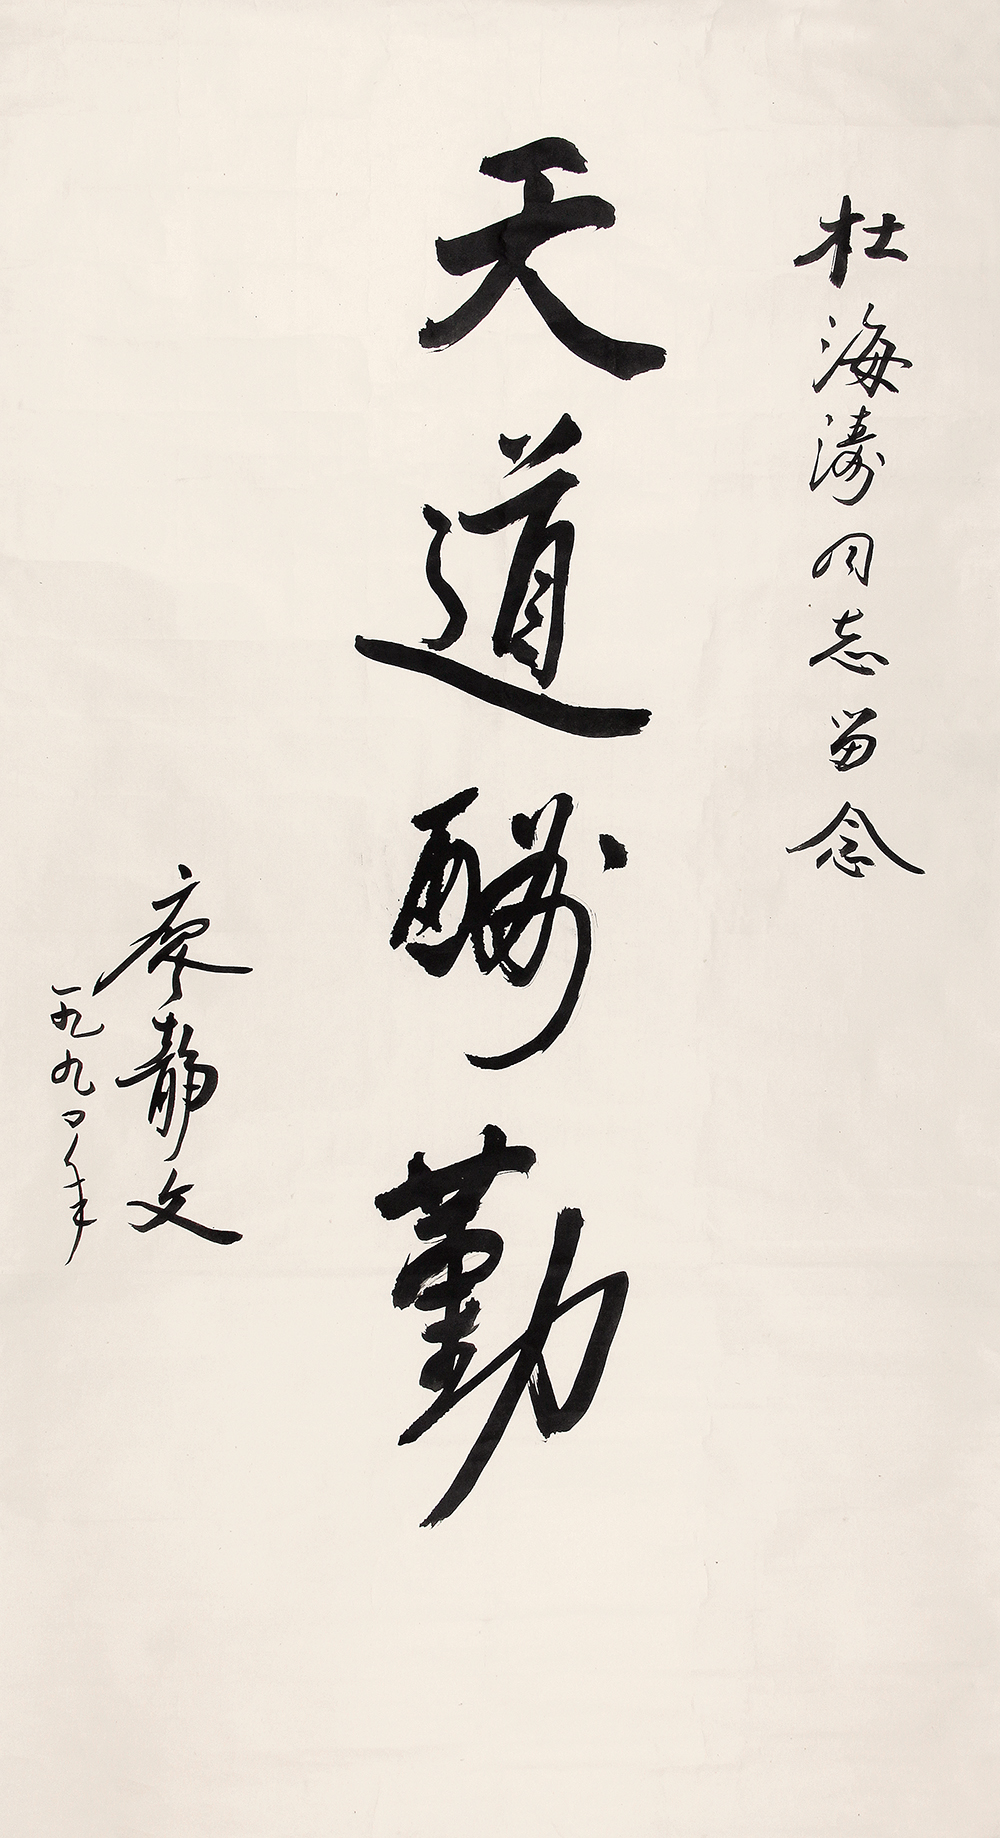 杜海涛同志留念
天道酬勤
廖静文
一九九〇年